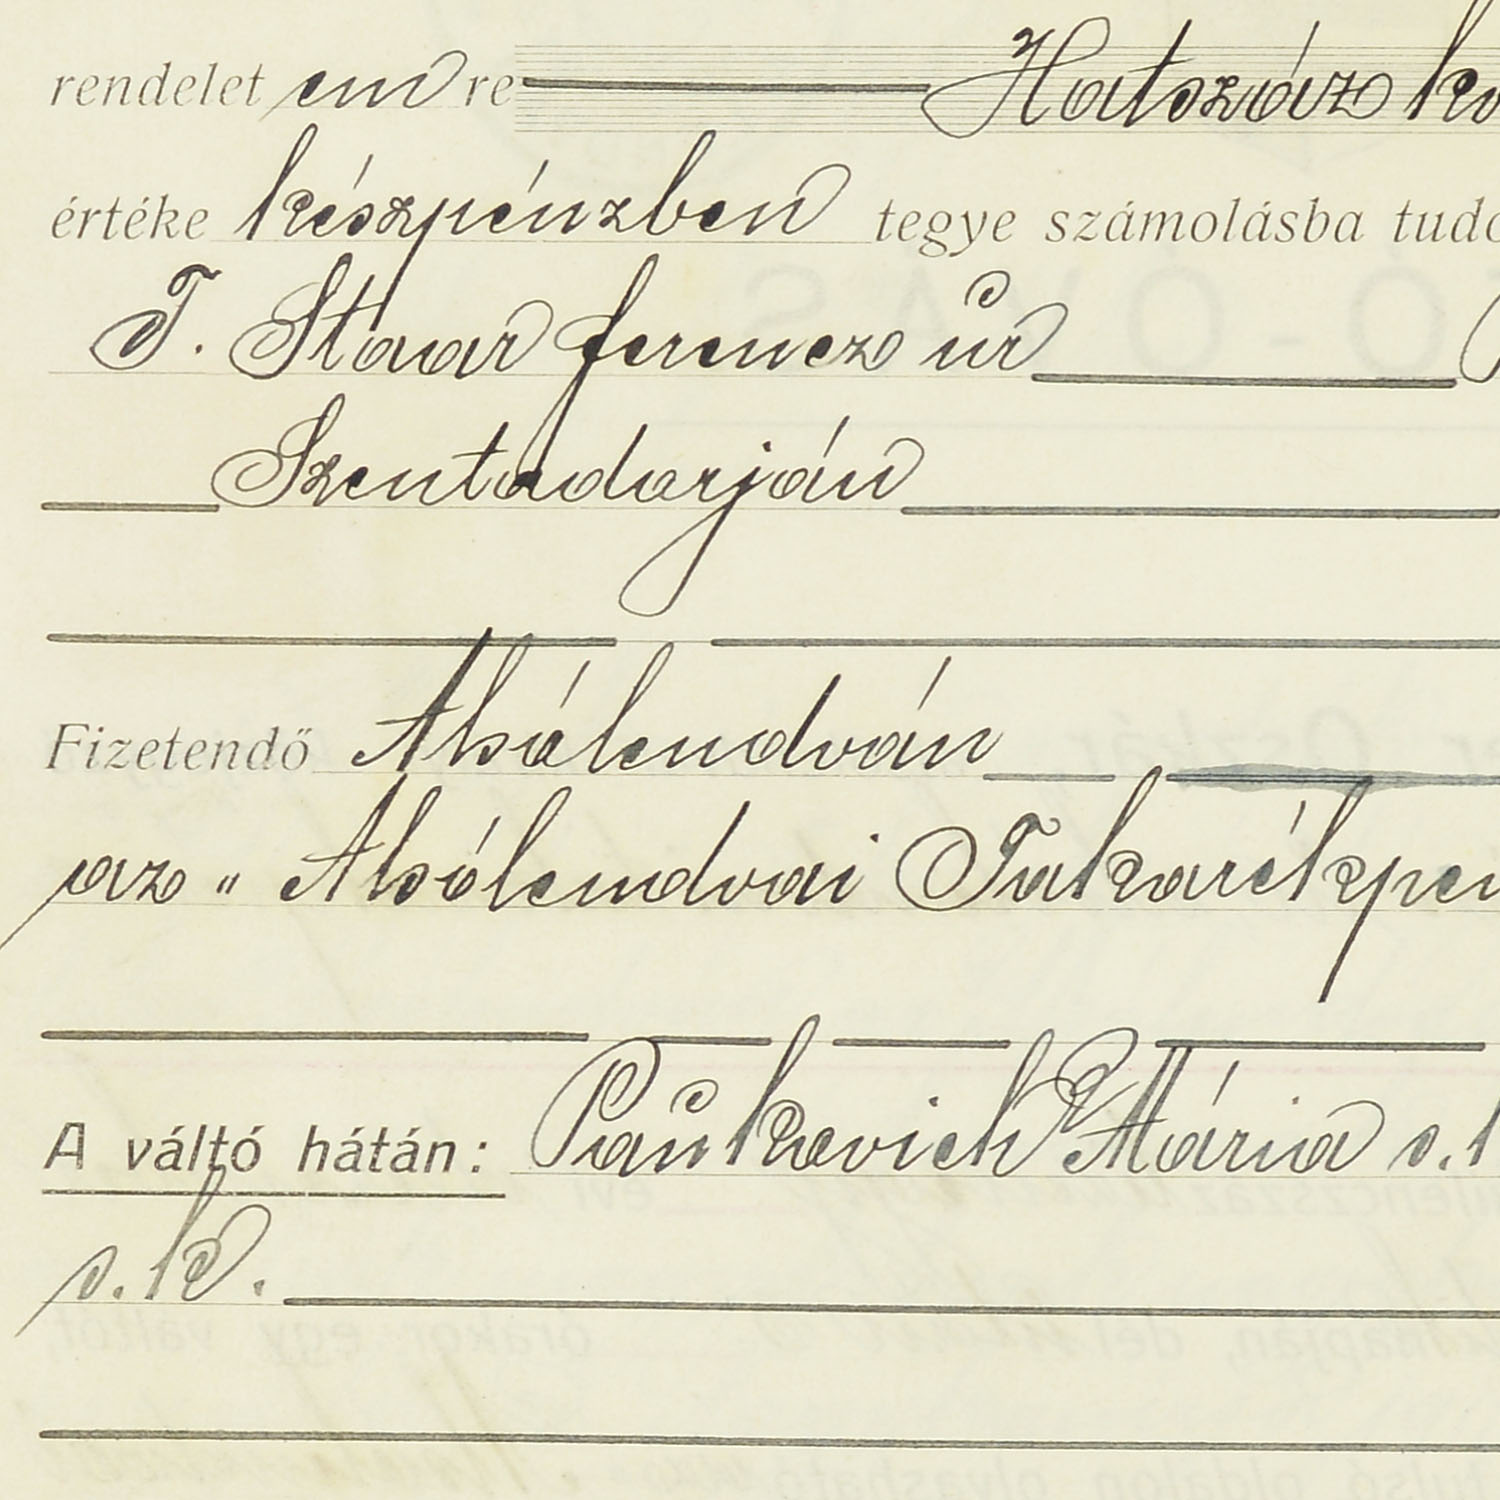 rendelet em re Hatszáz ko
értéke készpénzben tegye számolásba tudo
T. Staar ferencz úr
Szentadorján
Fizetendő Alsólendván
az „ Alsólendvai Takarékpén
A váltó hátán: Paukovich Mária s. k
s. k.